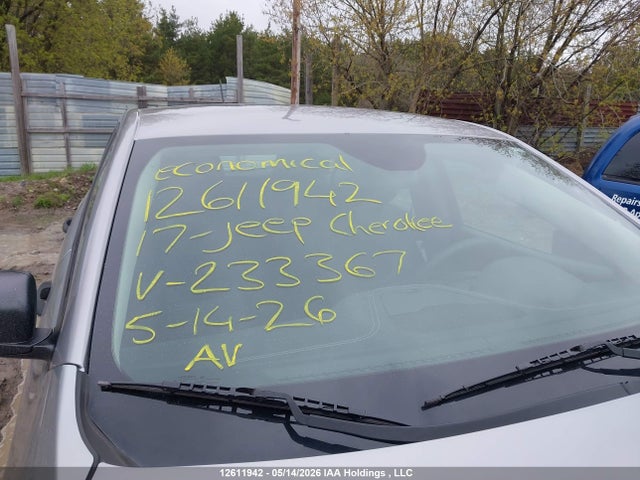 Economical
12611942
17-Jeep Cherokee
V-233367
5-14-26
AV
Repairs
12611942 - 05/14/2026 IAA Holdings , LLC